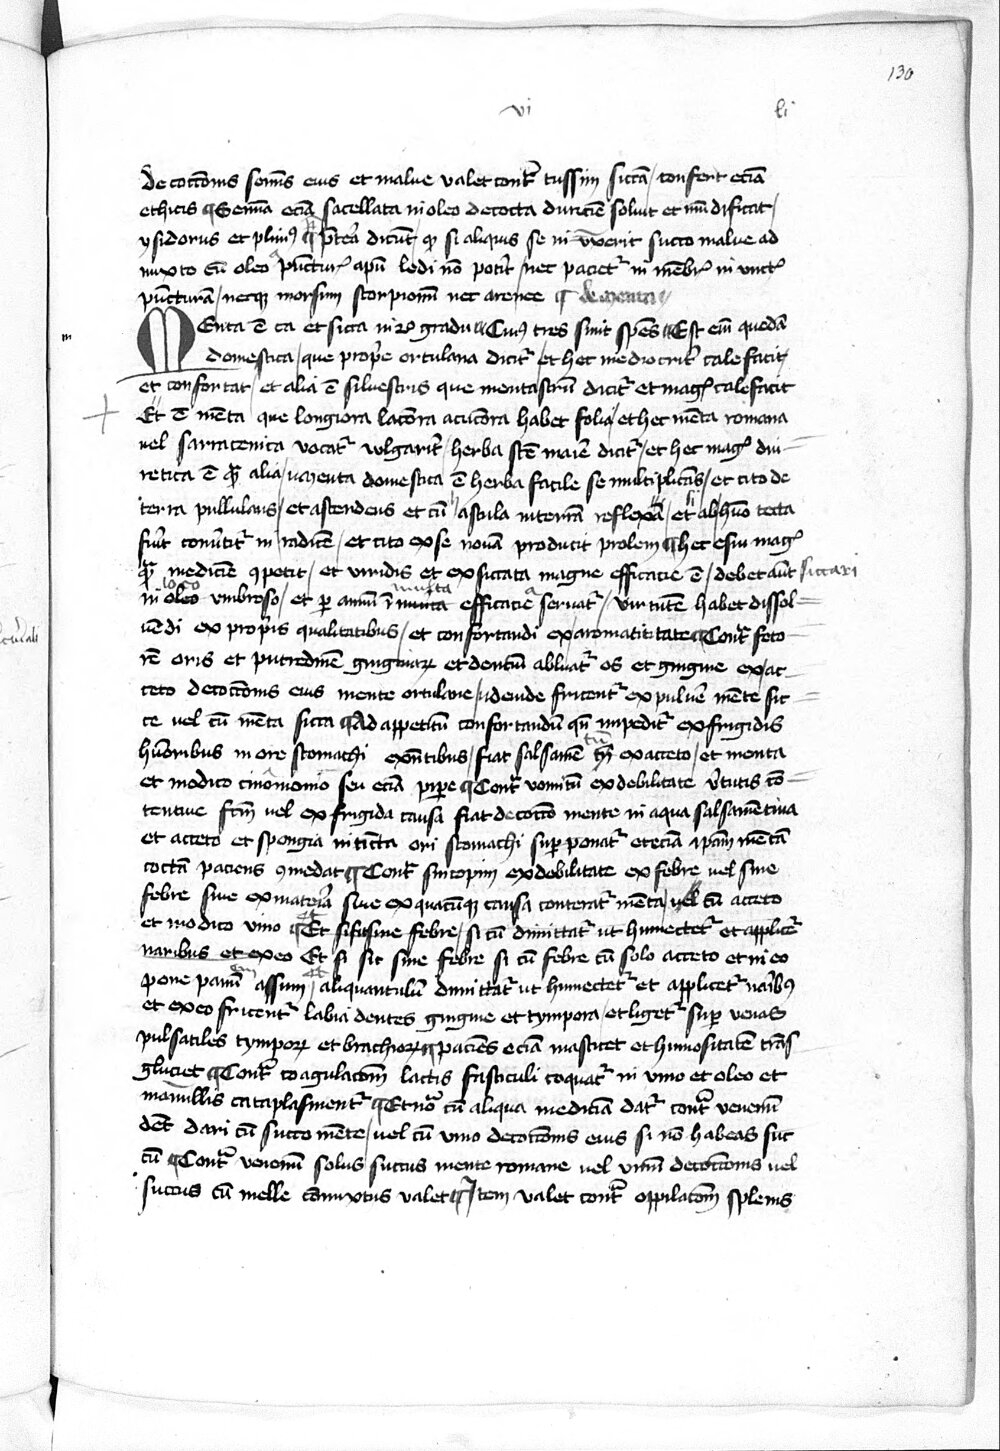 130
vi li
decoctiōnis seminis eius et malue valet contͬ tussim siccā / confert eciā
ethicis ¶ Semīa eciā sacellata in oleo decocta duriciē soluit et mūdificat /
ysidorus et pliniꝰ ¶ p̄terea dicūt qͥ si aliquis se in vnxerit succo malue ad
mixto cū oleo puncturͣ apum ledi nō poterit nec paciet in mēbrͦ in vnctͦ
pūcturā / necqꝫ morsum scorpionum nec aranee ¶ de menta
Menta ē ca et sicca in 2º gradu Cuiꝰ tres sunt spēs Est em̄ quedā
domestica / que propͥe ortulana dicitͬ et hec mediocritͬ calefacit
et confortat / et alia ē siluestris que mentastrū dicitͬ et magͥ calefacit
Et ē mēta que longiora laciora acuciora habet folia / et hec mēta romana
vel sarracenica vocatͬ vulgaritͬ / herba scē marie dicitͬ / et hec magͥ diu-
retica ē qͣ alia / Menta domestica ē herba facile se multiplicās / et cito de
terra pullulans / et ascendens et cū astula in terrā reflexa / et ab humo tecta
fuerit conͬtitͬ in radicē / et cito ex se nouā producit prolem ¶ hec esui magͥ
qͣ medicīe ꝯpetit / et viridis et exsiccata magne efficacie ē / debet aūt siccari
in oleo loco vmbroso / et per annū in multa efficacia seruatͬ / virtutē habet dissol-
uēdi ex propͥis qualitatibus / et confortandi ex aromaticitate ¶ Contͬ feto-
rē oris et putredinē gingiuarꝫ et dentiū abluatͬ os et gingiue ex ac-
ceto decoctiōnis eius mente ortulane / deinde fricentͬ ex puluē mēte sic-
ce vel cū mēta sicca ¶ Ad appetitū confortandū qn̄ impeditͬ ex frigidis
hūoribus in ore stomachi exn̄tibus / fiat salsamē tū ex acceto / et menta
et modico cinōmomo seu eciā pipere ¶ Contͬ vomitū ex debilitate ͮtutis cō-
tentiue fctm̄ vel ex frigida causa fiat decoctio mente in aqua salsamentina
et acceto et spongia intīcta ori stomachi suꝑ ponatͬ et eciā ipam mētā
coctā paciens ꝯmedat ¶ Contͬ sincopim ex debilitate ex febre vel sine
febre siue ex materia siue ex quacūqꝫ causa conteratͬ mēta / vel cū acceto
et modico vino ¶ Et si sit sine febre / si cū dimittatͬ ut humectetͬ et applicetͬ
naribus et ex eo Et si sit sine febre si cū febre cū solo acceto et in eo
pone panē assum / aliquantulū dimittatͬ ut humectetͬ et applicetͬ naribꝰ
et ex eo fricentͬ labia dentes gingiue et tympora / et ligetͬ suꝑ venas
pulsatiles tymporꝫ et brachiorꝫ ¶ paciēs eciā masticet et humositatē trās
gluciet ¶ Contͬ coagulacōm lactis fasciculi coquatͬ in vino et oleo et
mamillis cataplasmentͬ ¶ Et nō cū aliqua medicīa datͬ contͬ venenū
debet dari cū succo mēte / vel cū vino decoctiōnis eius si nō habeas suc
cū ¶ Contͬ venenū solus succus mente romane vel vinū decoctiōnis vel
succus cū melle cōmixtus valet ¶ Item valet contͬ oppilacōm splenis